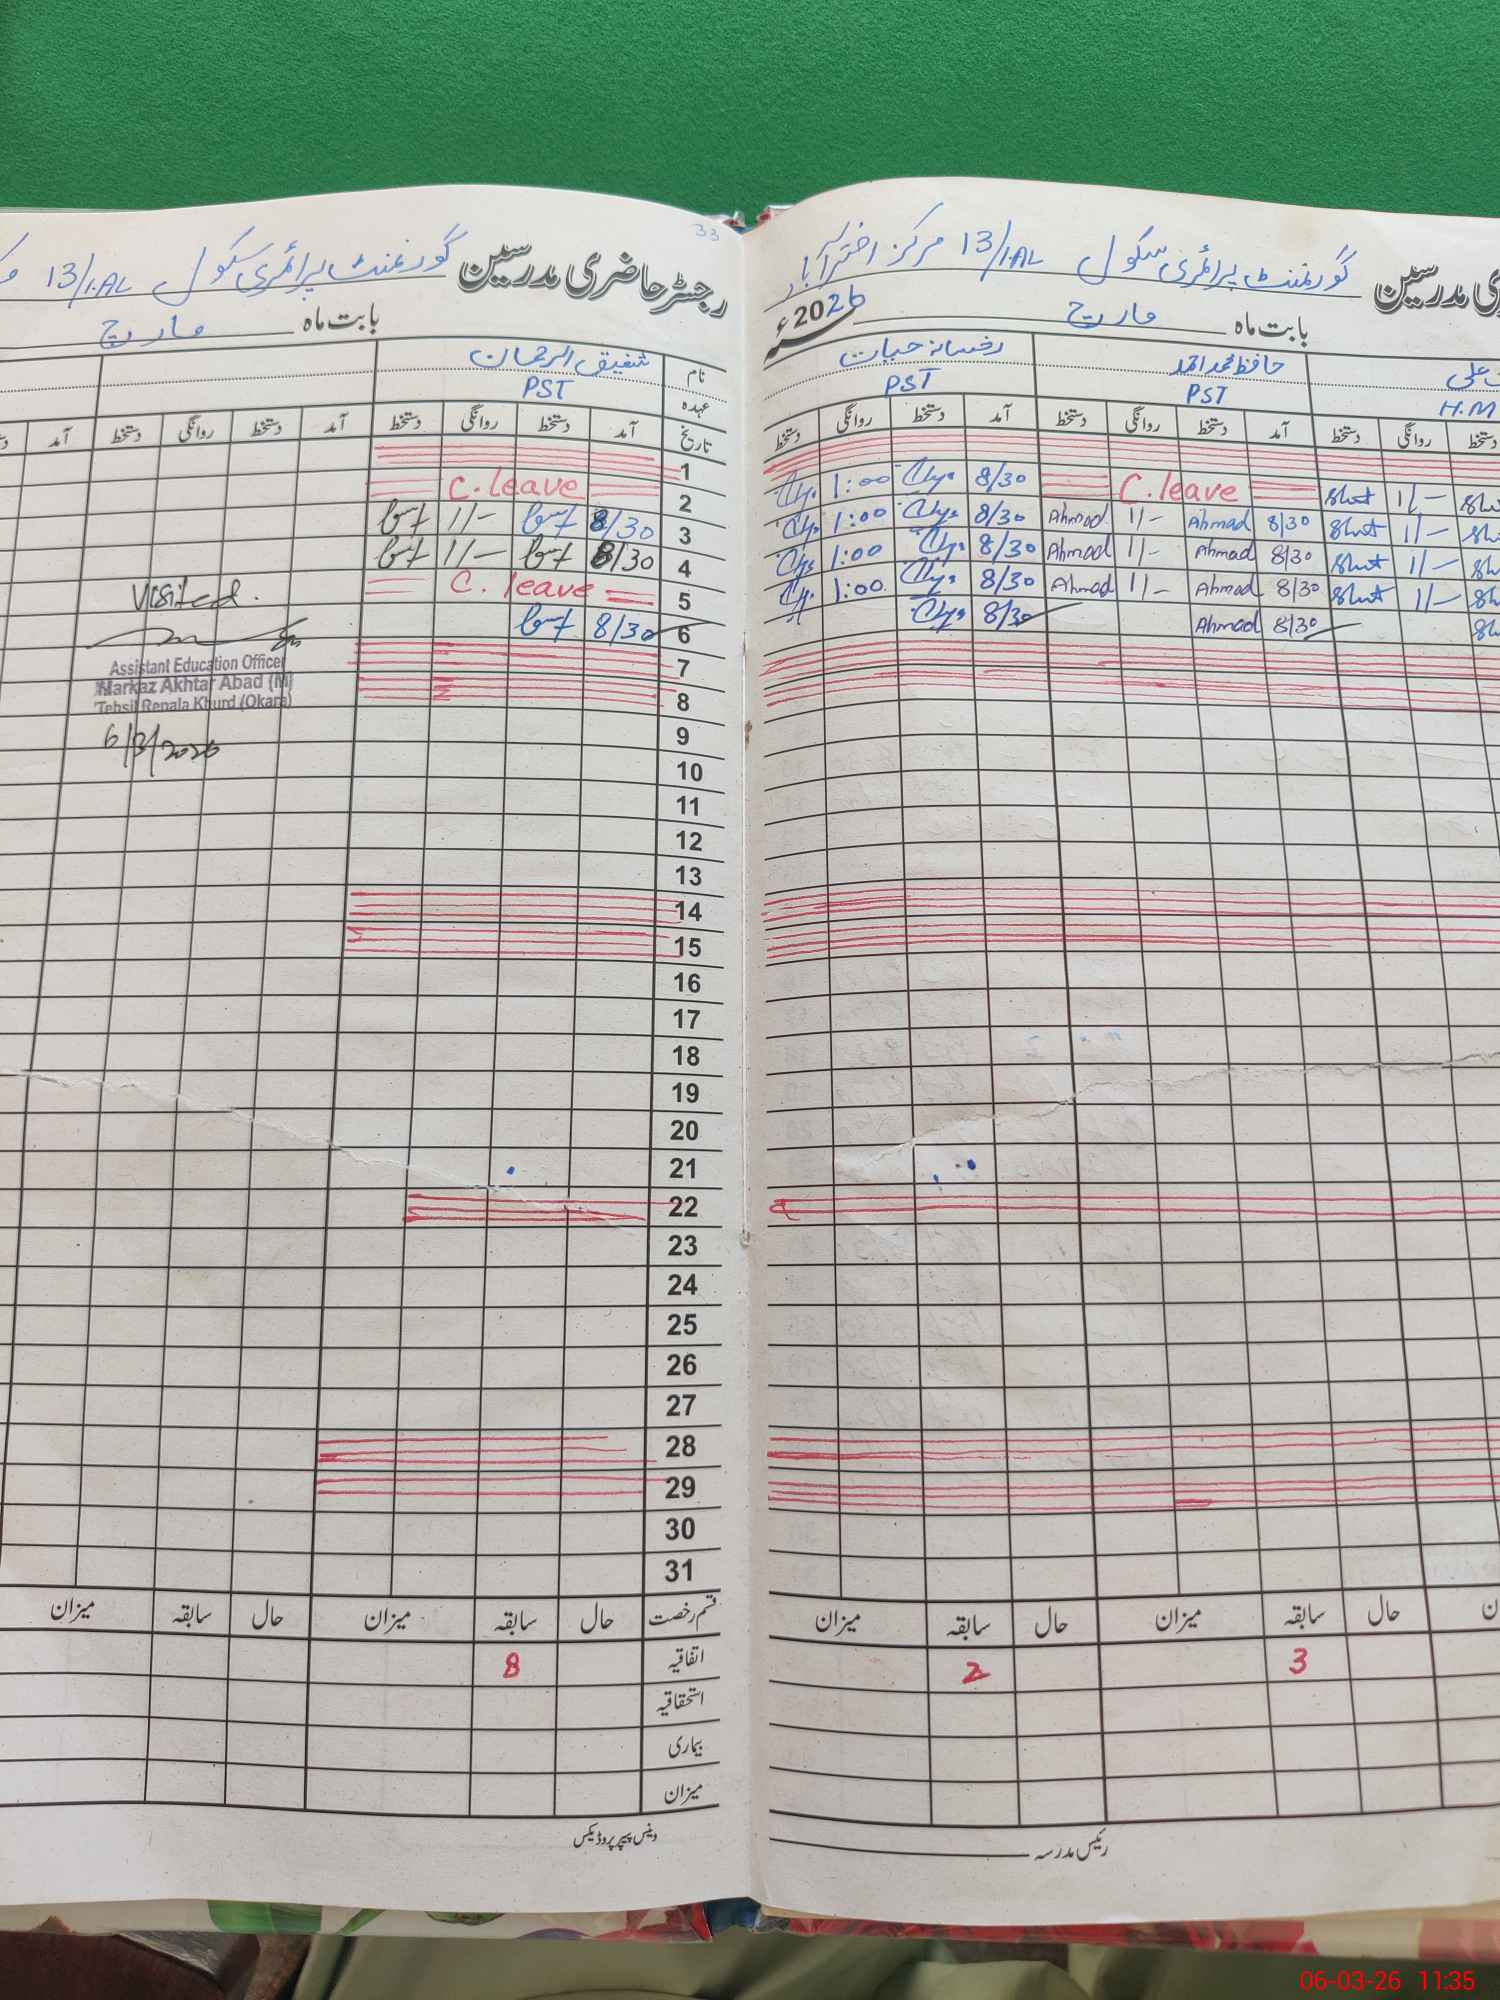 رجسٹر حاضری مدرسین گورنمنٹ پرائمری سکول 13/1.AL مرکز اخترآباد
بابت ماہ مارچ 2026ء
علی
حافظ محمد احمد
رخسانہ حیات
H.M
PST
PST
دستخط روانگی دستخط آمد دستخط روانگی دستخط آمد دستخط روانگی دستخط
1/- C.leave 8/30 1:00
1/- 8/30 Ahmad 1/- Ahmad 8/30 1:00
1/- 8/30 Ahmad 1/- Ahmad 8/30 1:00
1/- 8/30 Ahmad 1/- Ahmad 8/30 1:00
8/30 Ahmad 8/30
حال سابقہ میزان حال سابقہ میزان
3 2
رئیس مدرسہ
33
رجسٹر حاضری مدرسین گورنمنٹ پرائمری سکول 13/1.AL
بابت ماہ مارچ
نام شفیق الرحمان
عہدہ PST
تاریخ آمد دستخط روانگی دستخط آمد دستخط روانگی دستخط آمد
1
2 C.leave
3 8/30 1/-
4 8/30 1/-
5 C. leave
6 8/30
7
8
9
10
11
12
13
14
15
16
17
18
19
20
21
22
23
24
25
26
27
28
29
30
31
Visited.
Assistant Education Officer
Markaz Akhtar Abad (M)
Tehsil Renala Khurd (Okara)
6/3/2026
قسم رخصت حال سابقہ میزان حال سابقہ میزان
اتفاقیہ 8
استحقاقیہ
بیماری
میزان
وینس پیپر پروڈیکس
06-03-26 11:35